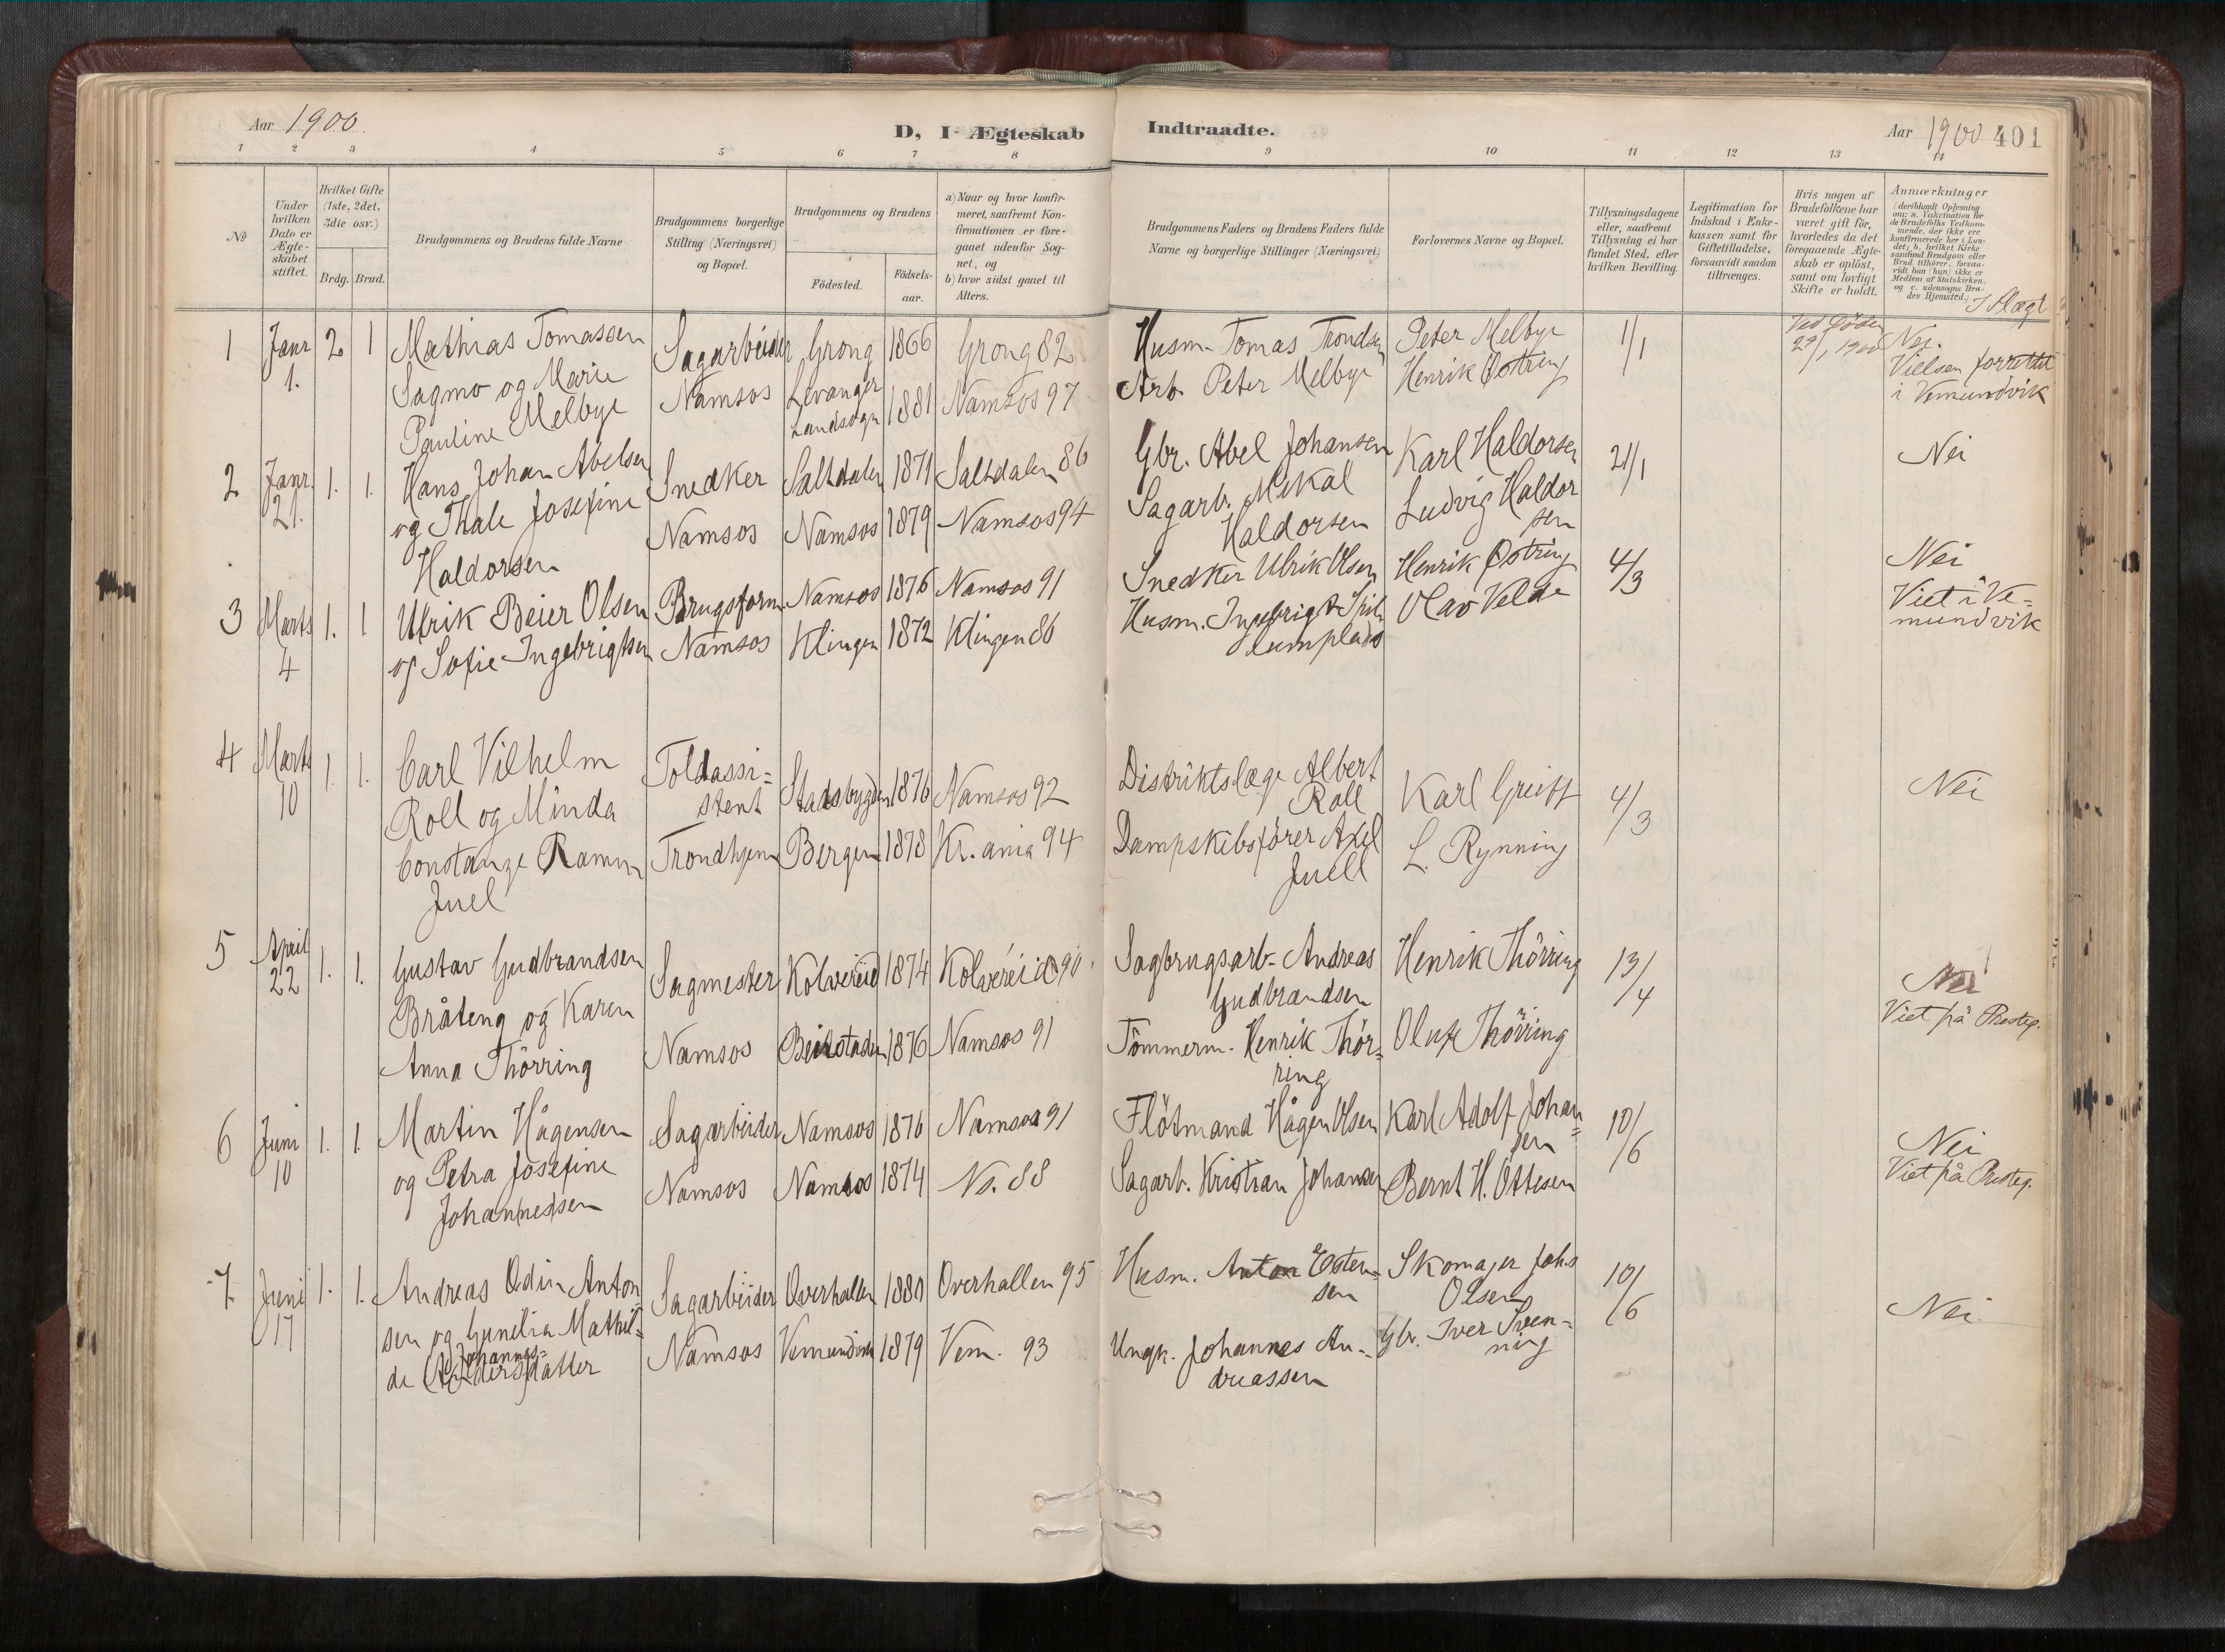 Aar 1900.
D, I Ægteskab
Indtraadte.
Aar 1900 401
1 2 3 4 5 6 7 8 9 10 11 12 13 14
No
Under hvilken Dato er Ægteskabet stiftet.
Hvilket Gifte (1ste, 2det, 3die osv.)
Brdg. Brud.
Brudgommens og Brudens fulde Navne
Brudgommens borgerlige Stilling (Næringsvei) og Bopæl.
Brudgommens og Brudens
Födested.
Födsels-aar.
a) Naar og hvor konfirmeret, saafremt Konfirmationen er foregaaet udenfor Sognet, og
b) hvor sidst gaaet til Alters.
Brudgommens Faders og Brudens Faders fulde Navne og borgerlige Stillinger (Næringsvei)
Forlovernes Navne og Bopæl.
Tillysningsdagene eller, saafremt Tillysning ei har fundet Sted, efter hvilken Bevilling.
Legitimation for Indskud i Enkekassen samt for Giftetilladelse, forsaavidt saadan tiltrænges.
Hvis nogen af Brudefolkene har været gift för, hvorledes da det foregaaende Ægteskab er oplöst, samt om lovligt Skifte er holdt.
Anmærkninger
(deriblandt Oplysning om: a. Vakcination for de Brudefolks Vedkommende, der ikke ere konfirmerede her i Landet; b. hvilket Kirkesamfund Brudgom eller Brud tilhører, forsaavidt han (hun) ikke er Medlem af Statskirken, og c. udensogns Brudes Hjemsted.)
I Slægt
1 Janr 1. 2 1 Mathias Tomassen Sagarbeider Grong 1866 Grong 82 Husm. Tomas Trondsen Peter Melbye 1/1 Ved Döden 29/1 1900 Nei.
Sagmo og Marie Namsos Levanger Landsogn 1881 Namsos 97 Arb. Peter Melbye Henrik Østring Vielsen forrettet
Pauline Melbye i Vemundvik
2 Janr. 21. 1. 1. Hans Johan Abelsen Snedker Saltdalen 1871 Saltdalen 86 Gbr. Abel Johansen Karl Haldorsen 21/1 Nei
og Thale Josefine Namsos Namsos 1879 Namsos 94 Sagarb. Mikal Ludvig Haldor
Haldorsen Haldorsen sen
3 Marts 4 1. 1 Ulrik Beier Olsen Brugsform. Namsos 1876 Namsos 91 Snedker Ulrik Olsen Henrik Østring 4/3 Nei
og Sofie Ingebrigtsen Namsos Klingen 1872 Klingen 86 Husm. Ingebrigt Spil Olav Velde Viet i Ve=
lumplads mundvik
4 Marts 10 1. 1. Carl Vilhelm Toldassi= Stadsbygden 1876 Namsos 92 Distriktslæge Albert Karl Greiff 4/3 Nei
Roll og Minda stent Roll
Constanze Ramm Trondhjem Bergen 1878 Kr.ania 94 Dampskibsförer Axel L. Rynning
Juel Juell
5 April 22 1. 1. Gustav Gudbrandsen Sagmester Kolvereid 1874 Kolvereid 90. Sagbrugsarb. Andreas Henrik Thörring 13/4 Nei
Bråteng og Karen Gudbrandsen
Anna Thörring Namsos Beitstaden 1876 Namsos 91 Tömmerm. Henrik Thör= Oluf Thörring Viet på Presteg.
ring
6 Juni 10 1. 1. Martin Hågensen Sagarbeider Namsos 1876 Namsos 91 Flötmand Hågen Olsen Karl Adolf Johan= 10/6 Nei
og Petra Josefine sen Viet på Presteg.
Johannessen Namsos Namsos 1874 Ns. 88 Sagarb. Kristian Johansen Bernt H. Ottesen
7. Juni 17 1. 1. Andreas Odin Anton Sagarbeider Overhallen 1880 Overhallen 95 Husm. Anton Esten= Skomager Johs 10/6 Nei.
sen og Gunelia Mathil= sen Olsen
de Johannes= datter Namsos Vemundvik 1879 Vem. 93 Ungk. Johannes An= Gbr. Iver Sven=
dreassen ning